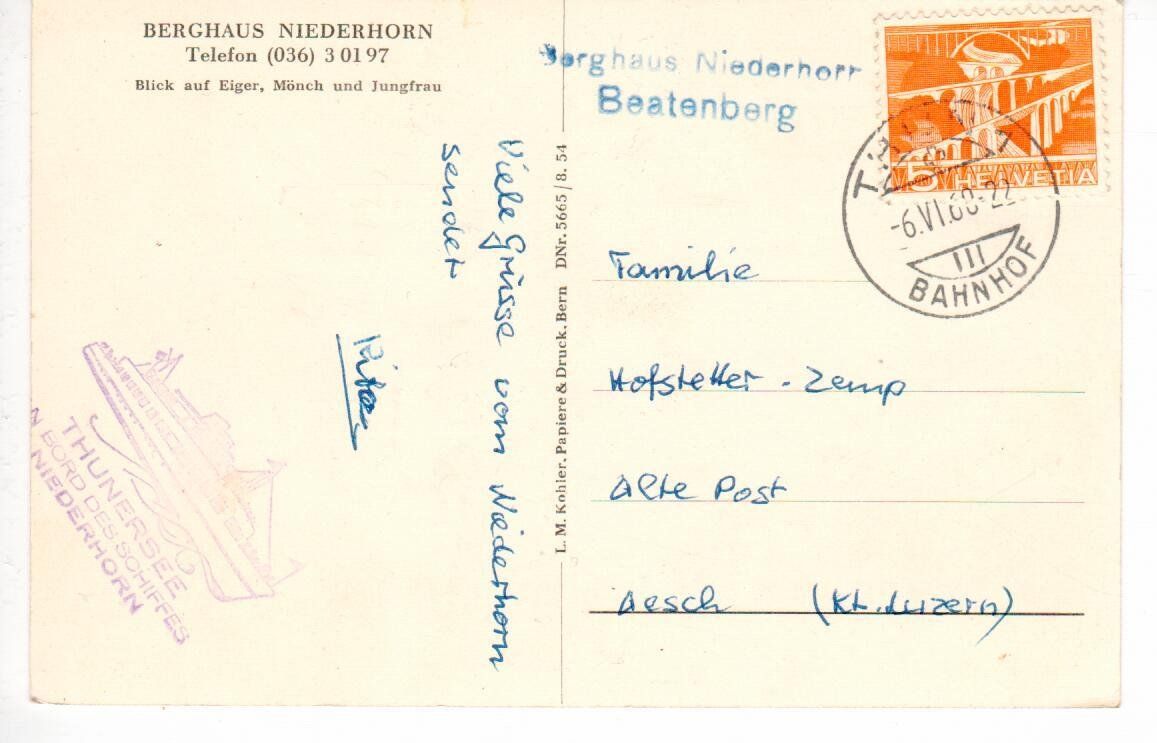 BERGHAUS NIEDERHORN
Telefon (036) 3 01 97
Blick auf Eiger, Mönch und Jungfrau
Berghaus Niederhorn
Beatenberg
5 HELVETIA
-6.VI.60-22
III
BAHNHOF
Viele Grüsse vom Niederhorn
sendet
L. M. Kohler, Papiere & Druck, Bern DNr. 5665/8. 54
Familie
Hofstetter - Zemp
Alte Post
Aesch (Kt. Luzern)
THUNERSEE
N BORD DES SCHIFFES
NIEDERHORN